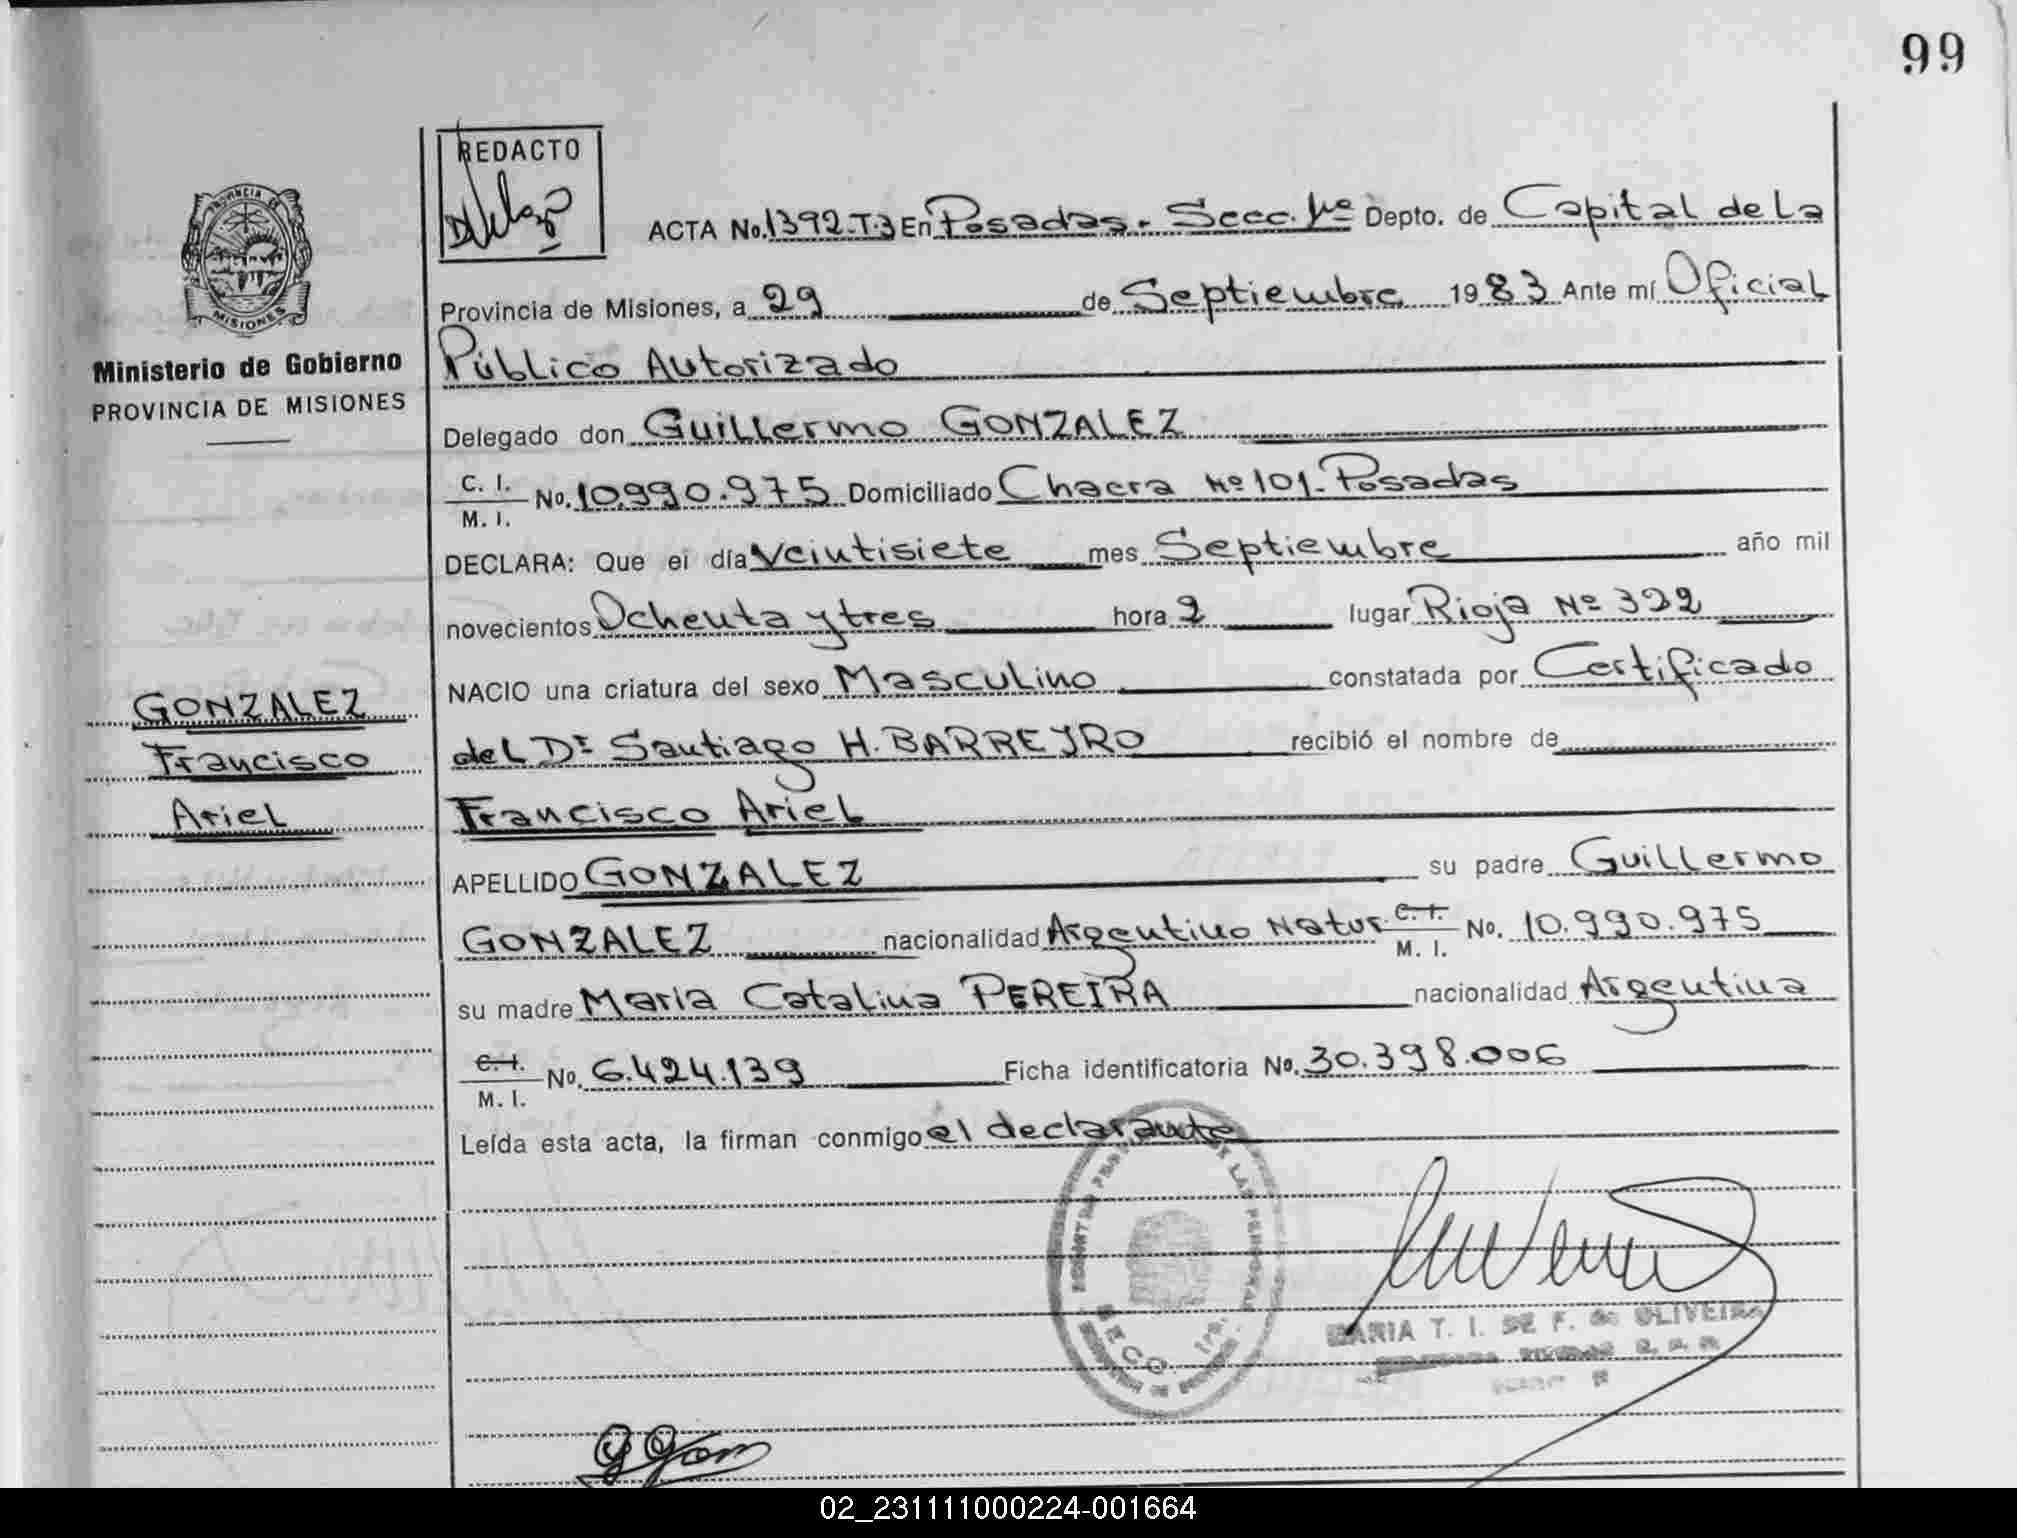 99
REDACTO
PROVINCIA DE
MISIONES
Ministerio de Gobierno
PROVINCIA DE MISIONES
ACTA No. 1392-T-3 En Posadas - Secc. 1ª Depto. de Capital de La
Provincia de Misiones, a 29 de Septiembre 1983 Ante mí Oficial
Público Autorizado
Delegado don Guillermo GONZALEZ
C. I.
M. I. No. 10.990.975 Domiciliado Chacra Nº 101 - Posadas
DECLARA: Que el día Veintisiete mes Septiembre año mil
novecientos Ochenta y tres hora 2 lugar Rioja Nº 392
NACIO una criatura del sexo Masculino constatada por Certificado
del Dr Santiago H. BARREYRO recibió el nombre de
Francisco Ariel
APELLIDO GONZALEZ su padre Guillermo
GONZALEZ nacionalidad Argentino Natur C. I.
M. I. No. 10.990.975
su madre Maria Catalina PEREIRA nacionalidad Argentina
C. I.
M. I. No. 6.424.139 Ficha identificatoria No. 30.398.006
Leída esta acta, la firman conmigo el declarante
GONZALEZ
Francisco
Ariel
DE LAS PERSONAS
MARIA T. I. DE F. de OLIVEIRA
02_231111000224-001664